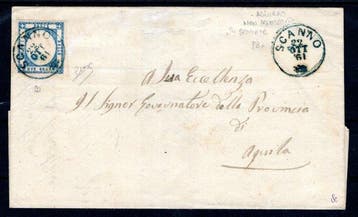 SCANNO
22
OTT
61
SCANNO
22
OTT
61
A Sua Eccellenza
Il Signor Governatore della Provincia
di
Aquila